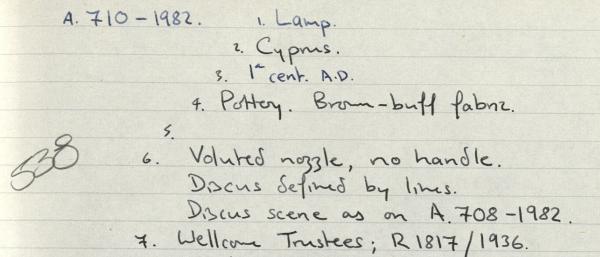 A. 710-1982. 1. Lamp.
2. Cyprus.
3. 1st cent. A.D.
4. Pottery. Brown-buff fabric.
5.
538
6. Voluted nozzle, no handle.
Discus defined by lines.
Discus scene as on A.708-1982.
7. Wellcome Trustees; R1817/1936.